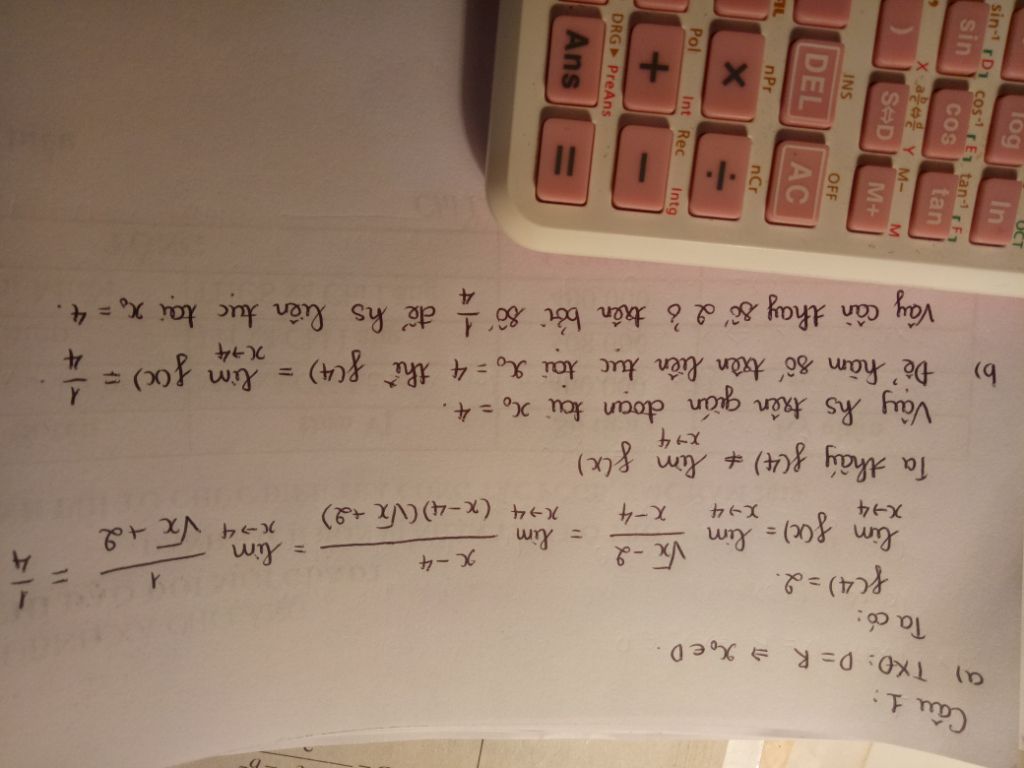 Câu 1:
a) TXĐ: D = R ⇒ x₀ ∈ D.
Ta có:
f(4) = 2.
lim x→4 f(x) = lim x→4 (√x - 2)/(x - 4) = lim x→4 (x - 4)/((x - 4)(√x + 2)) = lim x→4 1/(√x + 2) = 1/4
Ta thấy f(4) ≠ lim x→4 f(x)
Vậy hs trên gián đoạn tại x₀ = 4.
b) Để hàm số trên liên tục tại x₀ = 4 thì f(4) = lim x→4 f(x) = 1/4.
Vậy cần thay số 2 ở trên bởi số 1/4 để hs liên tục tại x₀ = 4.
sin⁻¹ D cos⁻¹ E tan⁻¹ F
log ln
sin cos tan
) S⇔D M+
X Y M- M
INS OFF
DEL AC
nPr nCr
× ÷
Pol Int Rec Intg
+ -
DRG▶ PreAns
Ans =